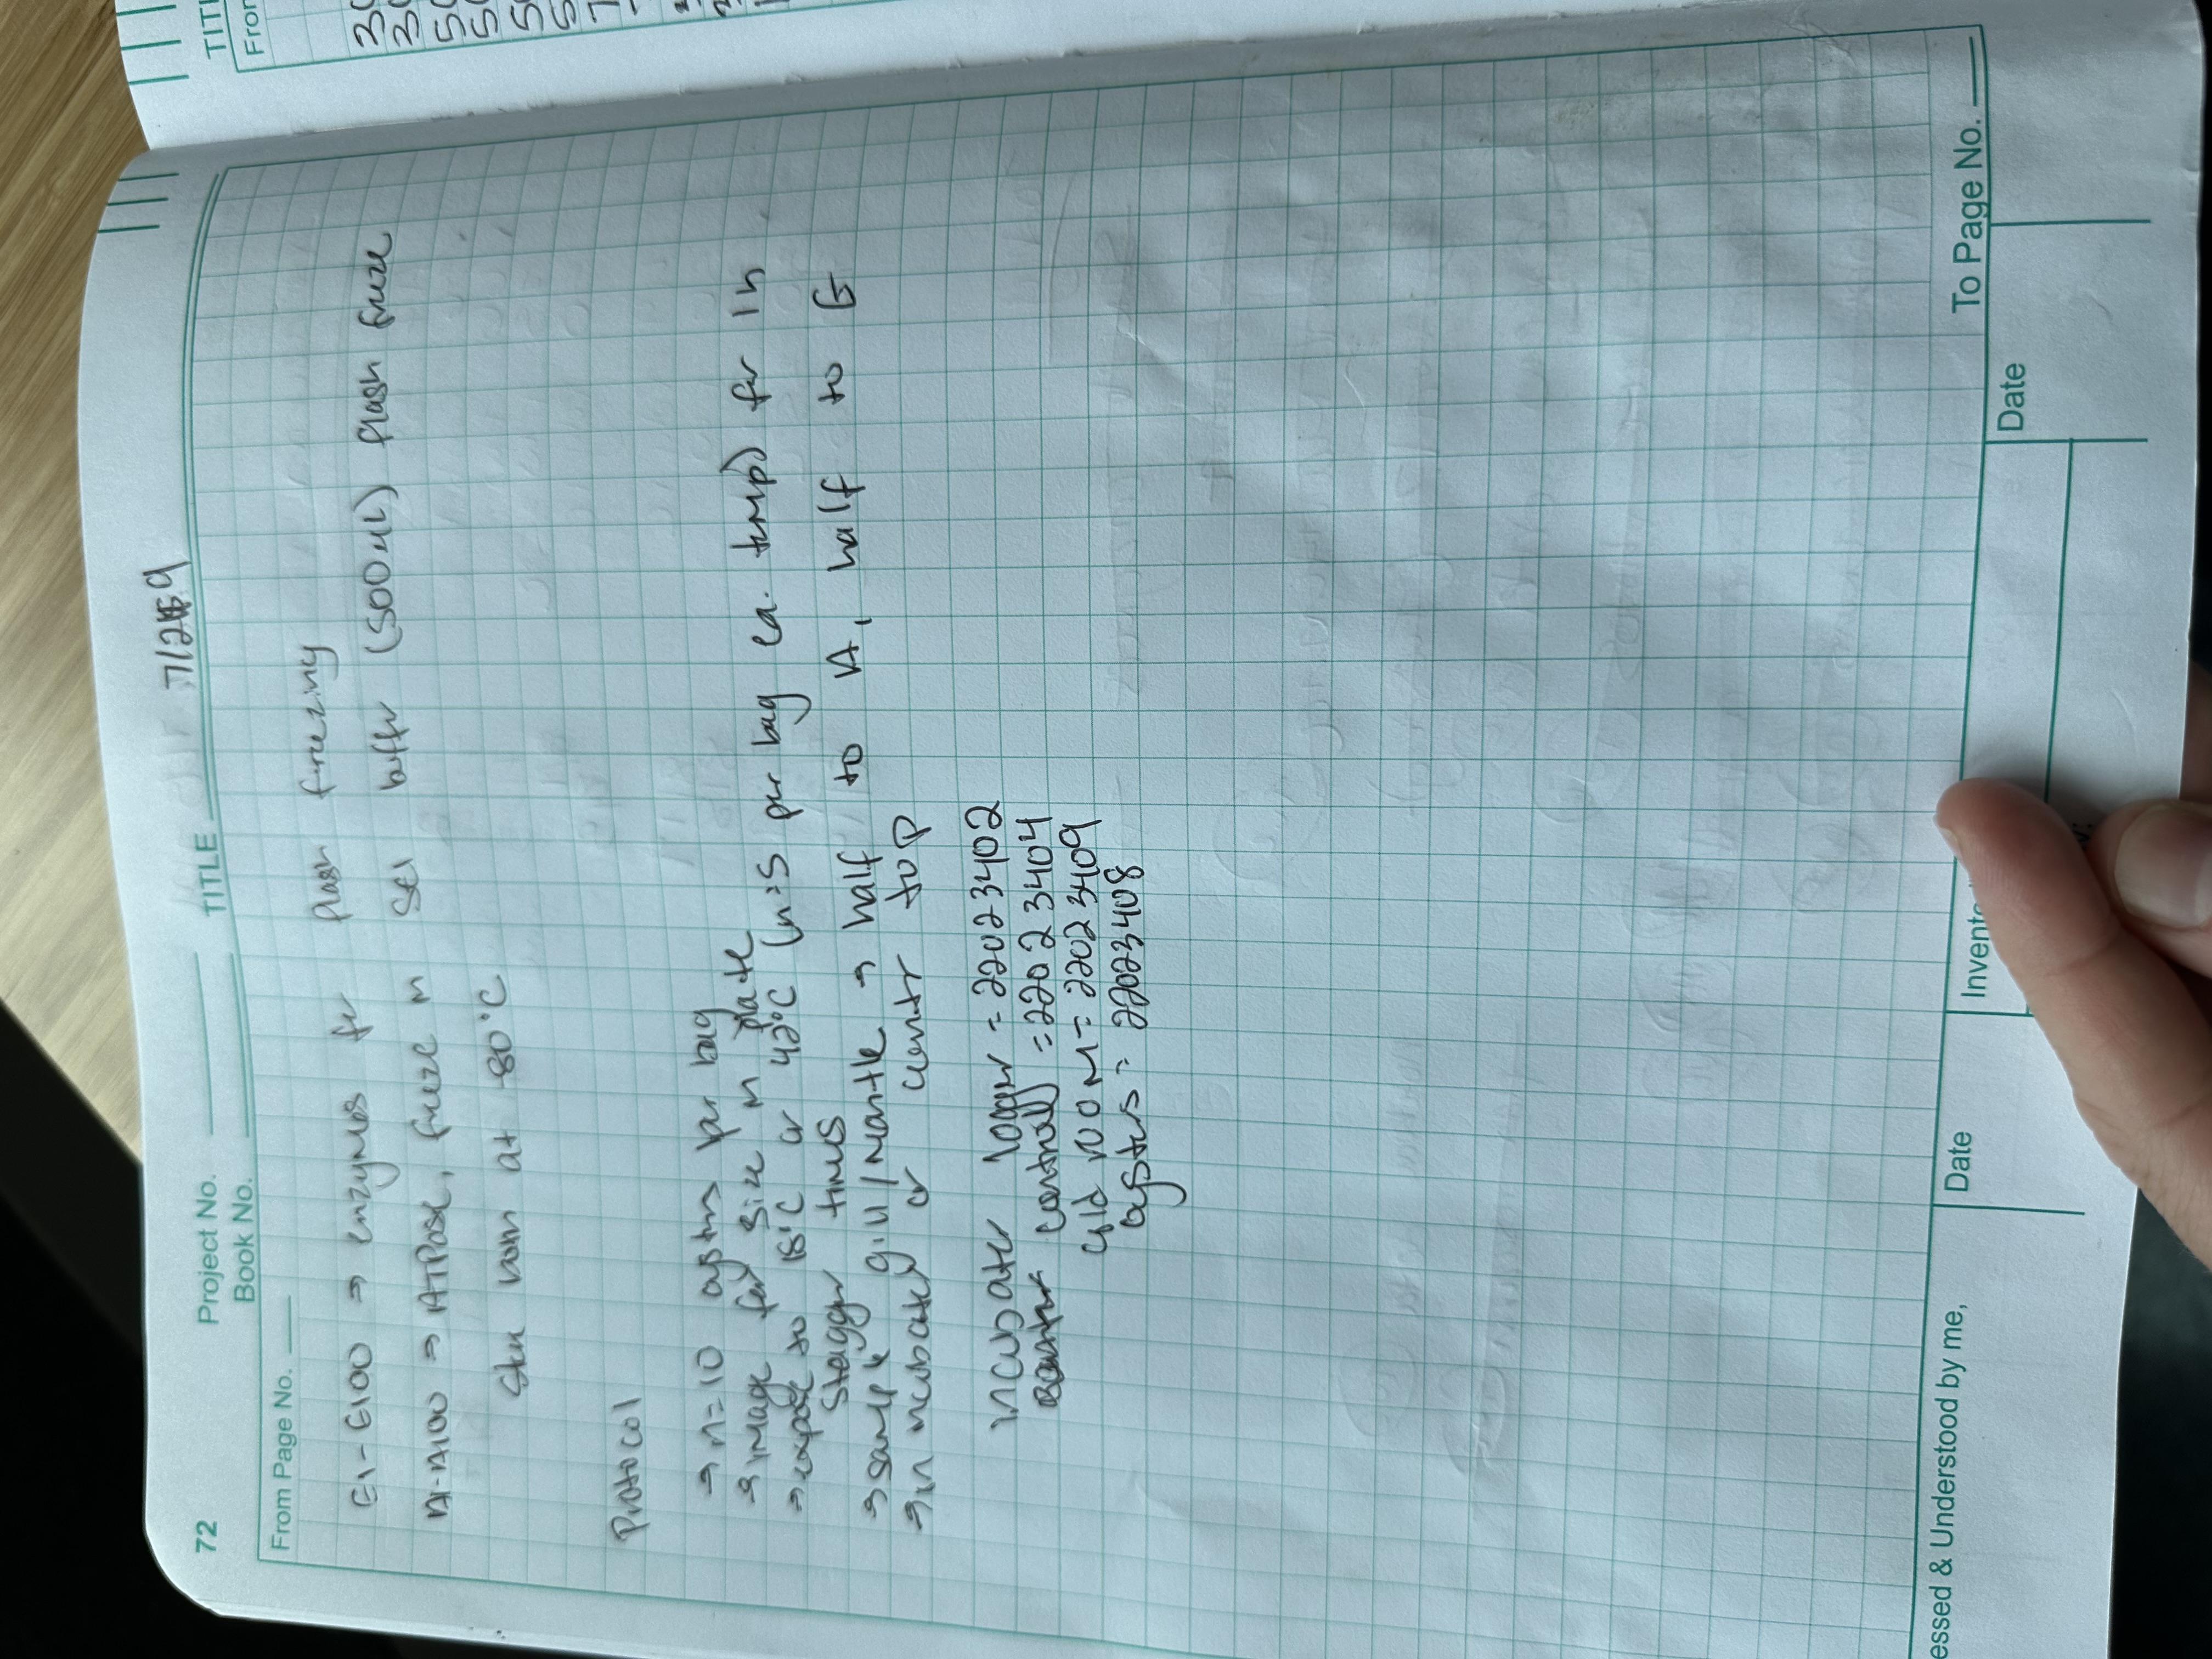 72
Project No.
Book No.
TITLE
7/29
From Page No.
E1-E100 → enzymes for flash freezing
A1-A100 → ATPase, freeze in SEI buffer (500uL) flash freeze
Store them at -80°C
Protocol
→ n=10 oysters per bag
→ image for size in plate
→ expose to 18°C or 42°C (n=5 per bag ea. temp) for 1h
stagger times
→ sample gill/mantle → half to A, half to E
→ in incubator or water top
incubater logger = 22023402
control = 22023404
cold room = 22023409
oysters = 22023408
To Page No.
essed & Understood by me,
Date
Invente
Date
TITL
From